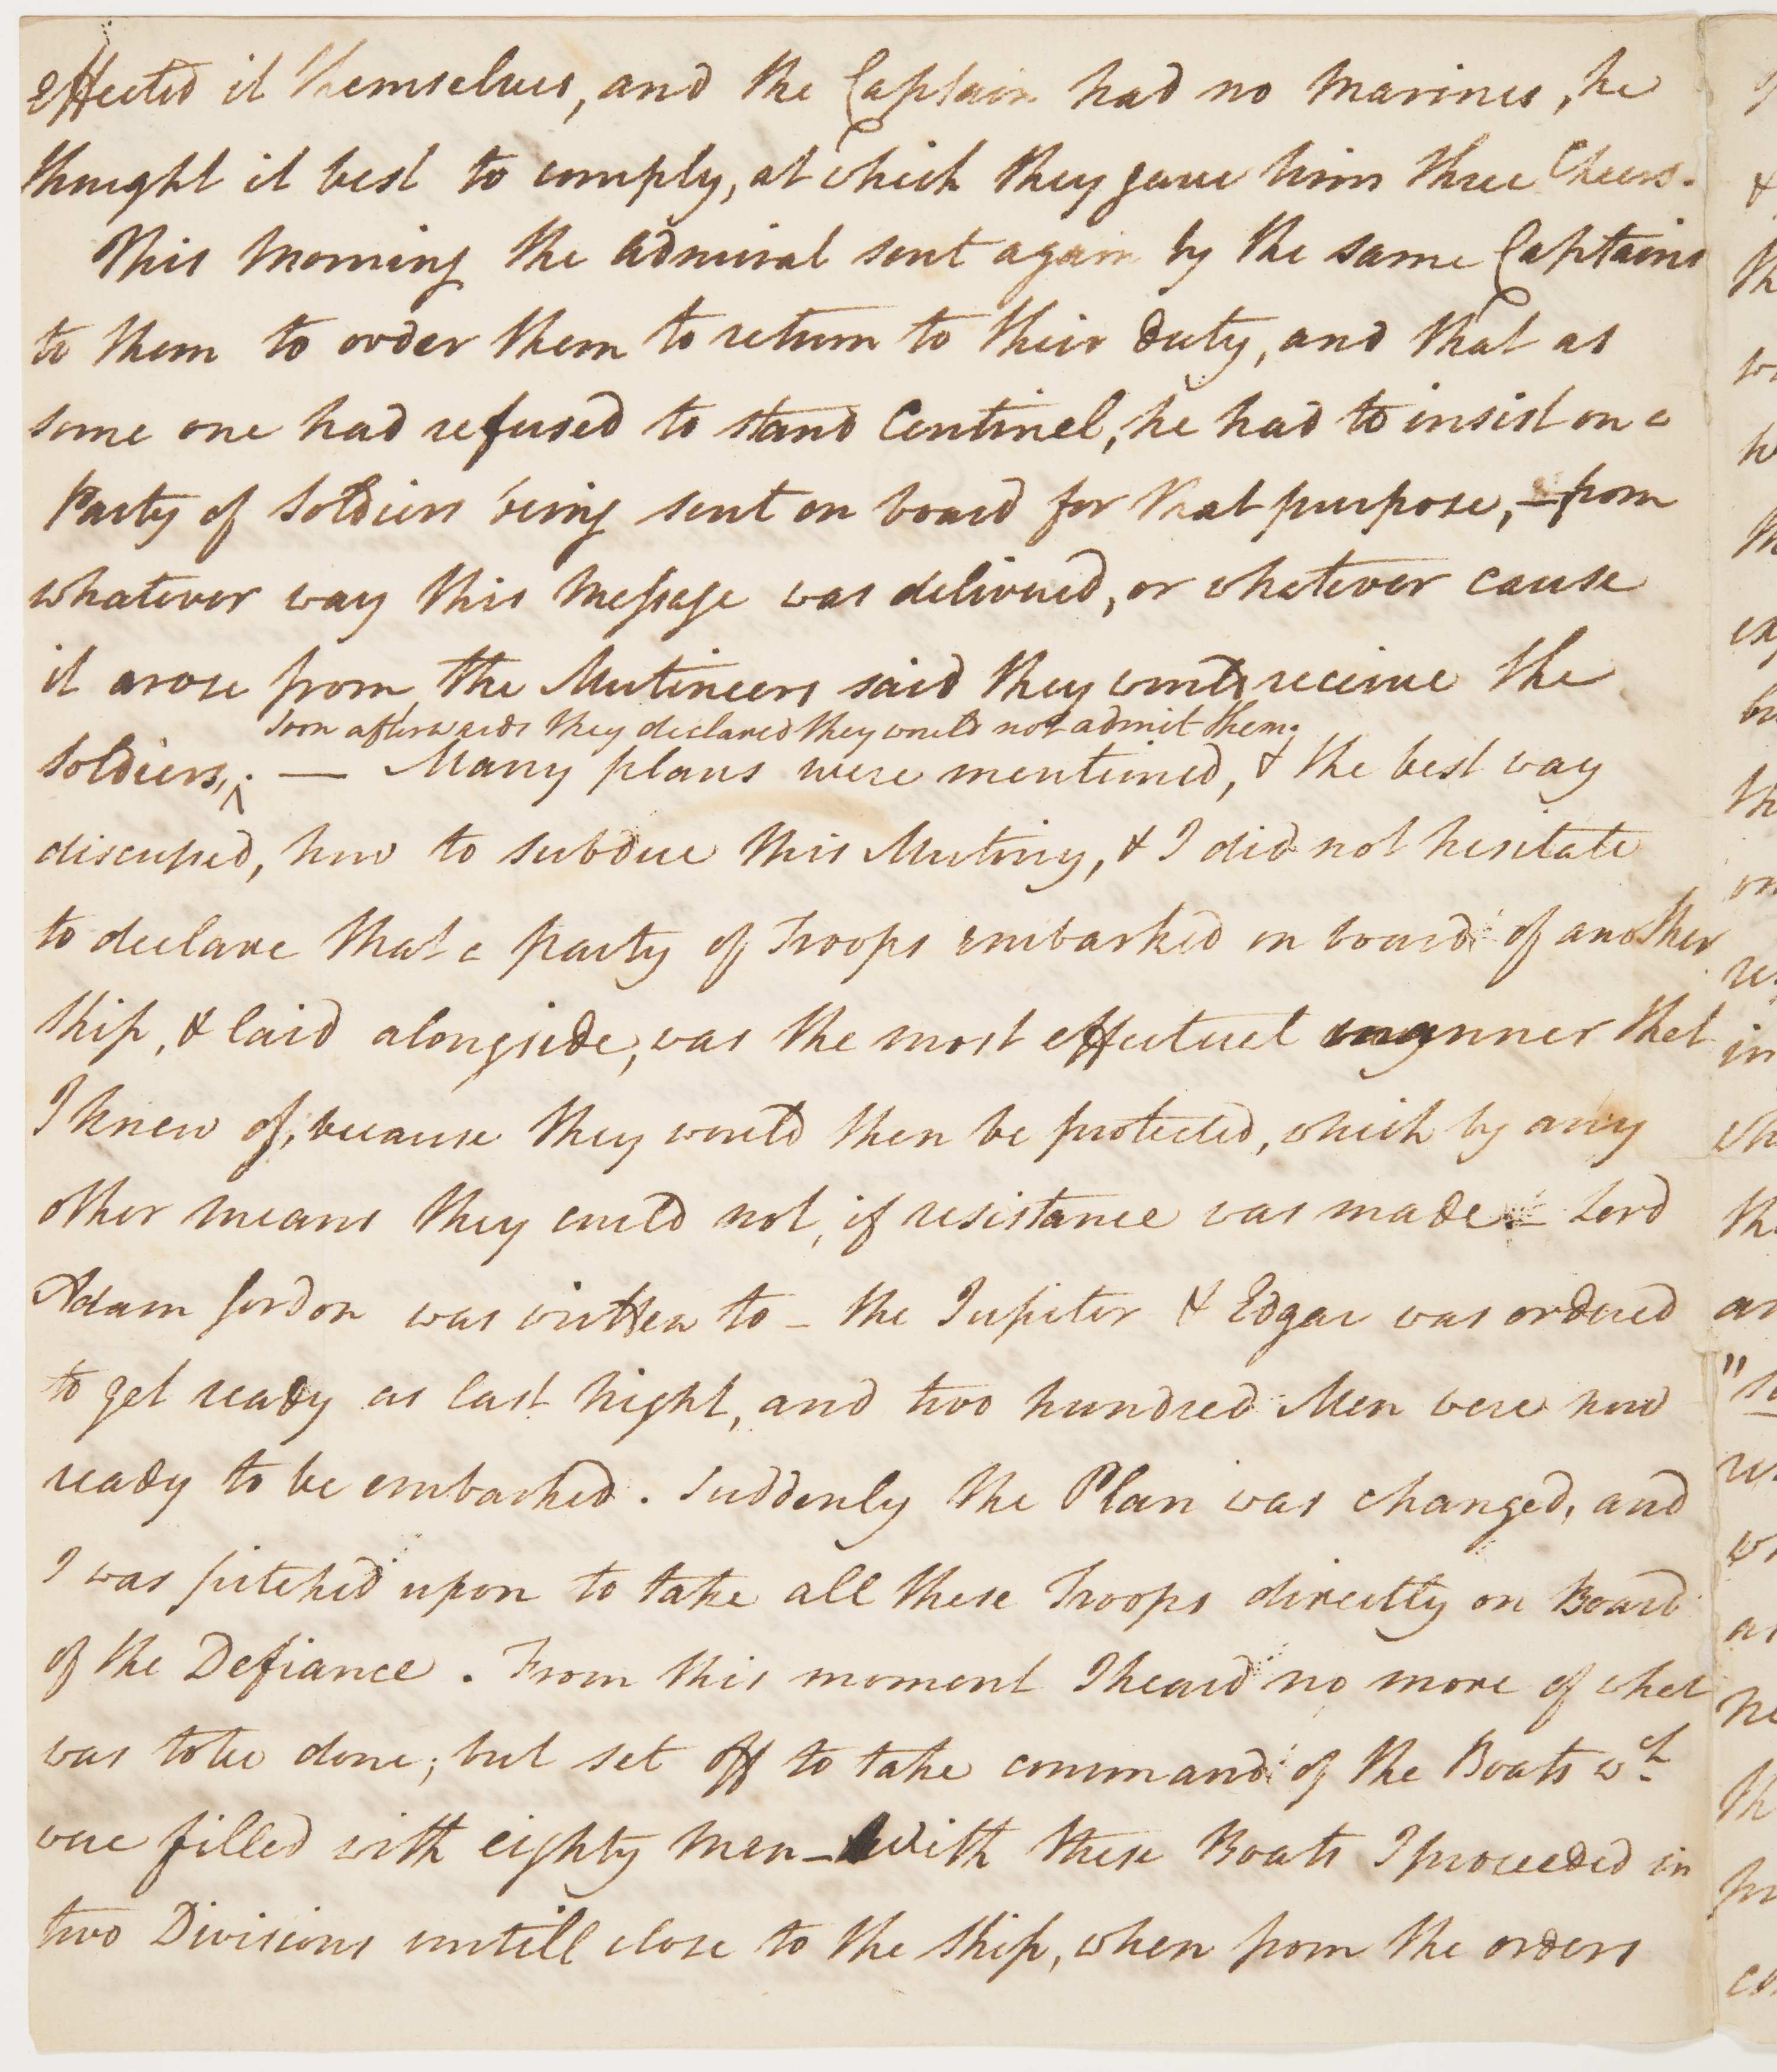 effected it themselves, and the Captain had no Marines, he
thought it best to comply, at which they gave him three Cheers.
This Morning the Admiral sent again by the same Captains
to them to order them to return to their Duty, and that as
some one had refused to stand Centinel, he had to insist on a
Party of Soldiers being sent on board for that purpose, — from
whatever way this Message was delivered, or whatever cause
it arose from, the Mutineers said they would receive the
soon afterwards they declared they would not admit them;
Soldiers, ; — Many plans were mentioned, & the best way
discussed, how to subdue this Mutiny, & I did not hesitate
to declare that a party of Troops embarked on board of another
Ship, & laid alongside, was the most effectual manner that
I knew of, because they would then be protected, which by any
other means they could not, if resistance was made. — Lord
Adam Gordon was written to — the Jupiter & Edgar was ordered
to get ready as last Night, and two hundred Men were now
ready to be embarked. Suddenly the Plan was changed, and
I was pitched upon to take all these Troops directly on Board
of the Defiance. From this moment I heard no more of what
was to be done; but set off to take command of the Boats wch
were filled with eighty Men — With these Boats I proceeded in
two Divisions untill close to the Ship, when from the orders